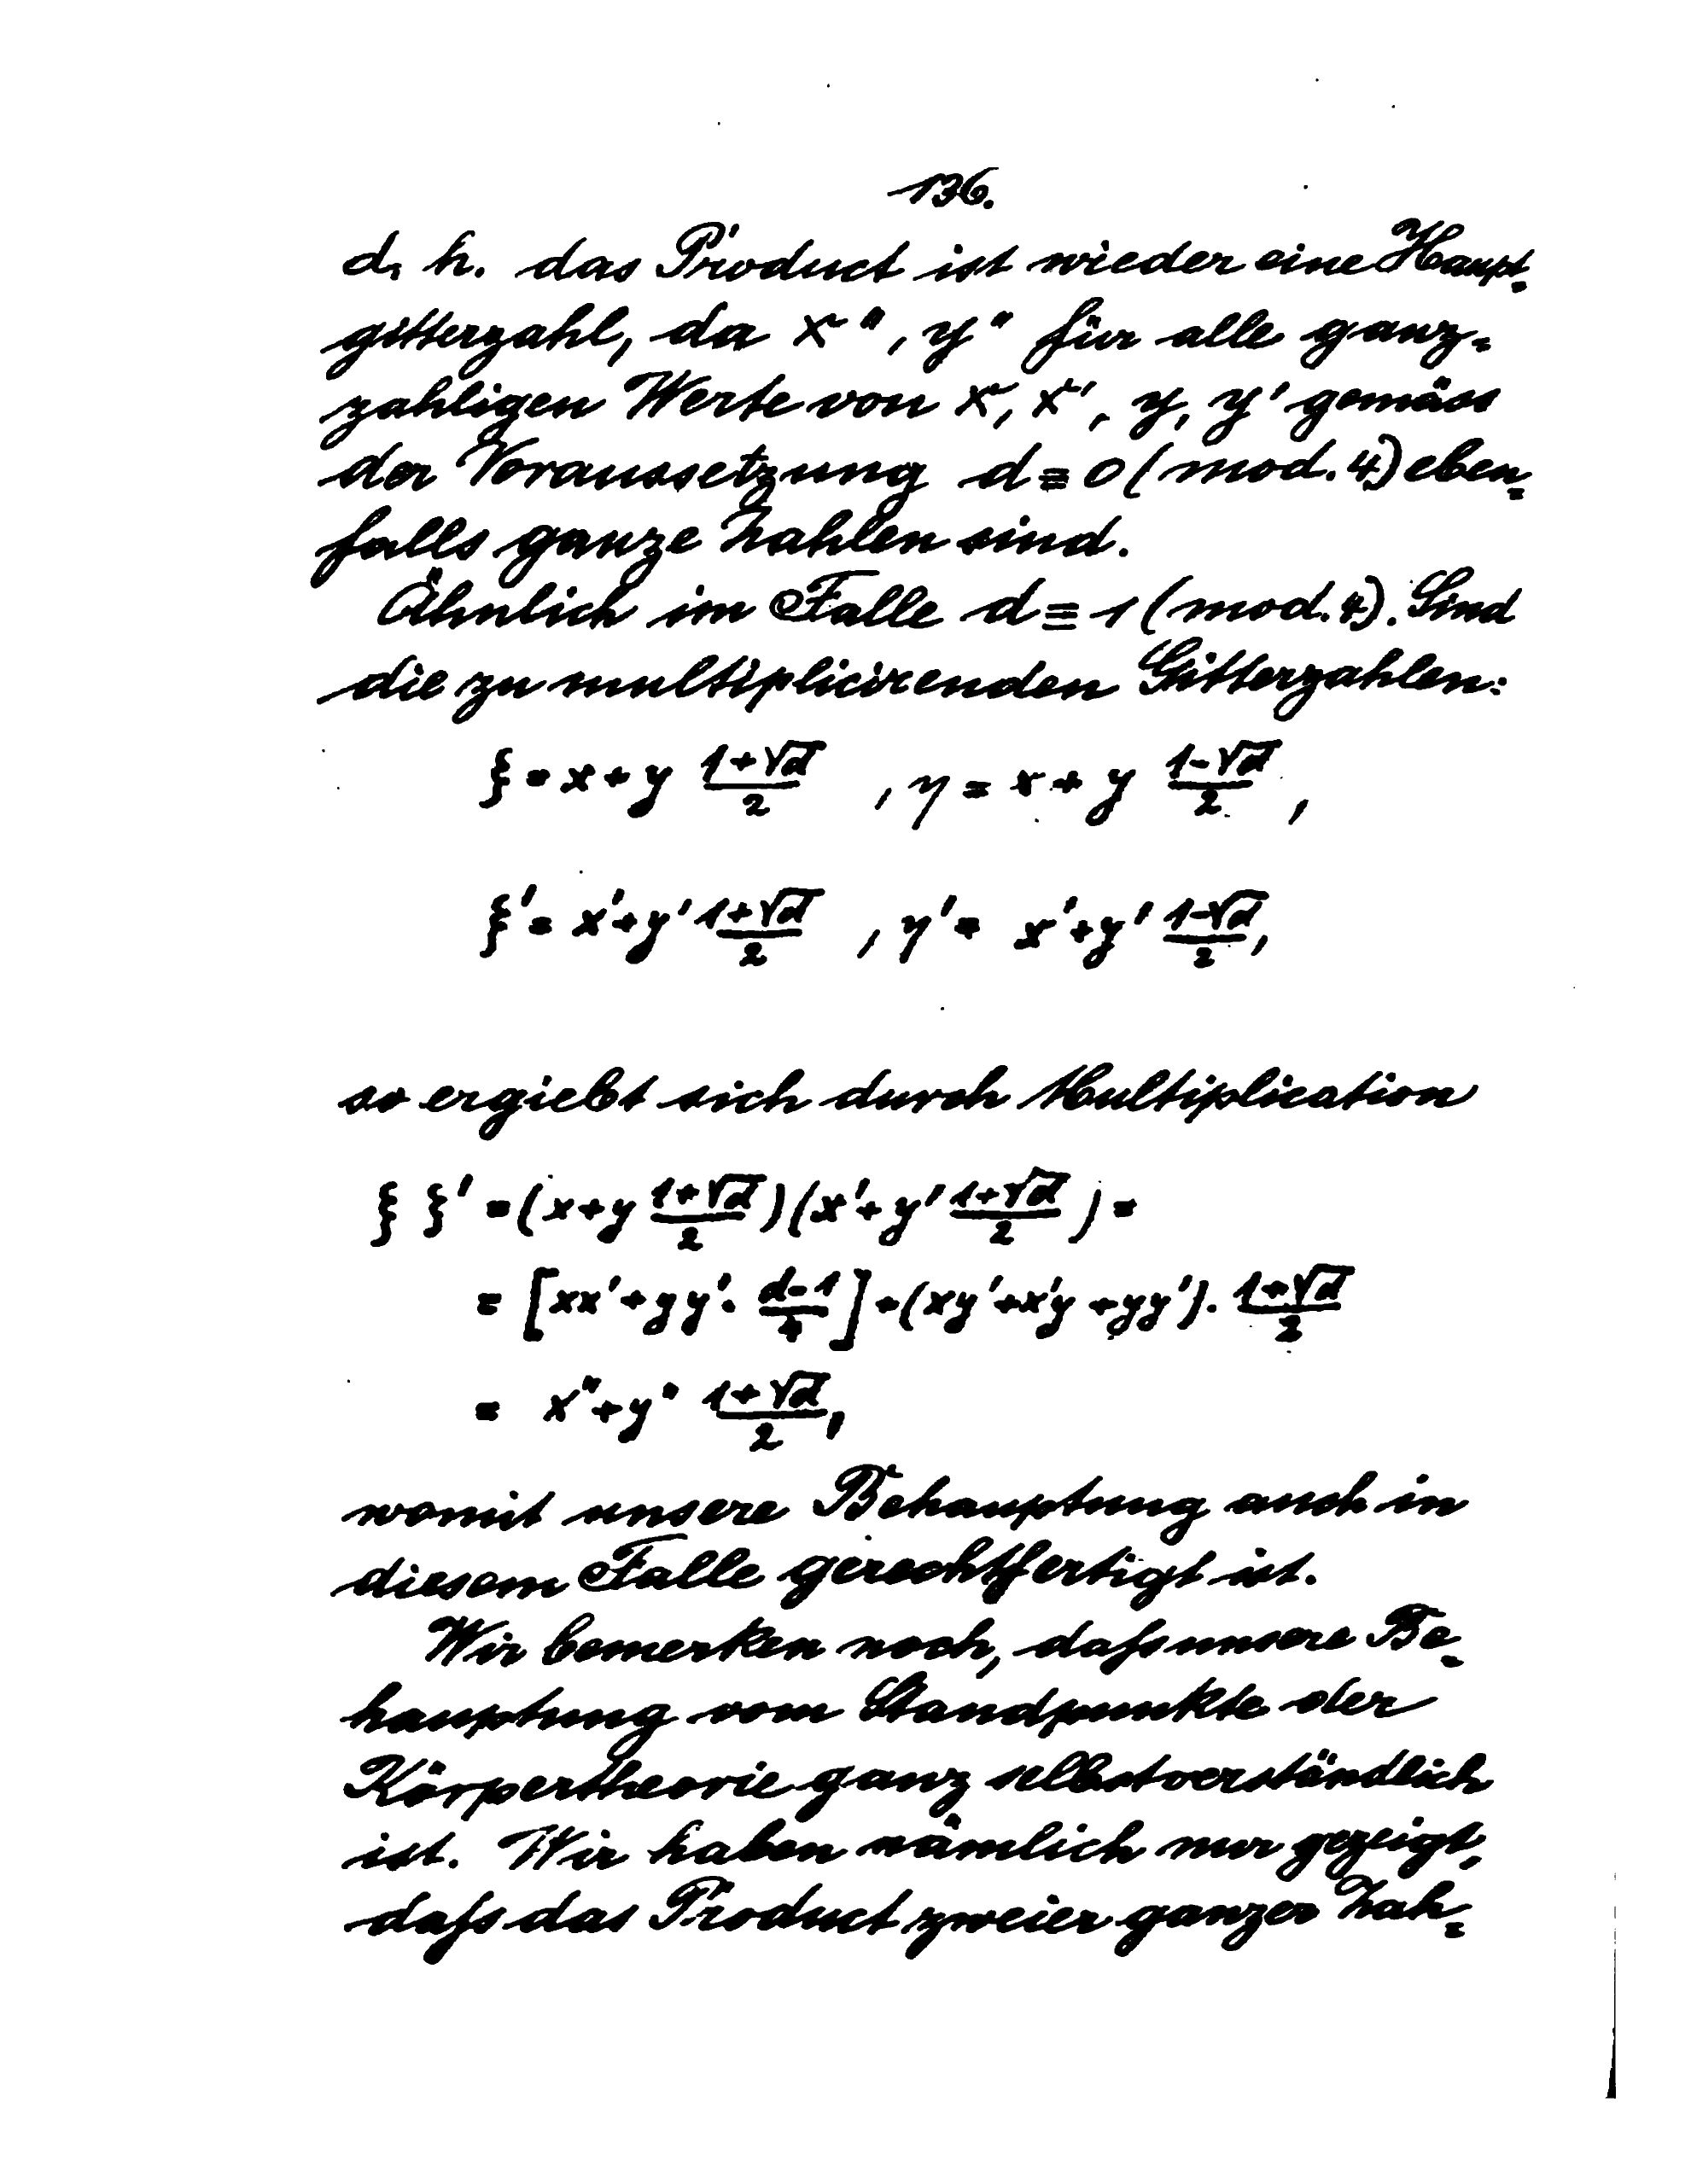 136.
d. h. das Product ist wieder eine Haupt-
gitterzahl, da x", y" für alle ganz-
zahligen Werte von x, x', y, y' gemäss
der Voraussetzung d ≡ 0 (mod. 4) eben-
falls ganze Zahlen sind.
Ähnlich im Falle d ≡ 1 (mod. 4). Sind
die zu multiplicirenden Gitterzahlen:
ξ = x + y (1+√d)/2 , η = x + y (1-√d)/2 ,
ξ' = x' + y' (1+√d)/2 , η' = x' + y' (1-√d)/2 ,
so ergiebt sich durch Multiplication
ξ ξ' = (x + y (1+√d)/2)(x' + y' (1+√d)/2) =
= [xx' + yy' · (d-1)/4] + (xy' + x'y + yy') · (1+√d)/2
= x" + y" (1+√d)/2 ,
womit unsere Behauptung auch in
diesem Falle gerechtfertigt ist.
Wir bemerken noch, daſs unsere Be-
hauptung vom Standpunkte der
Körpertheorie ganz selbstverständlich
ist. Wir haben nämlich nur gezeigt,
daſs das Product zweier ganzer Zah-